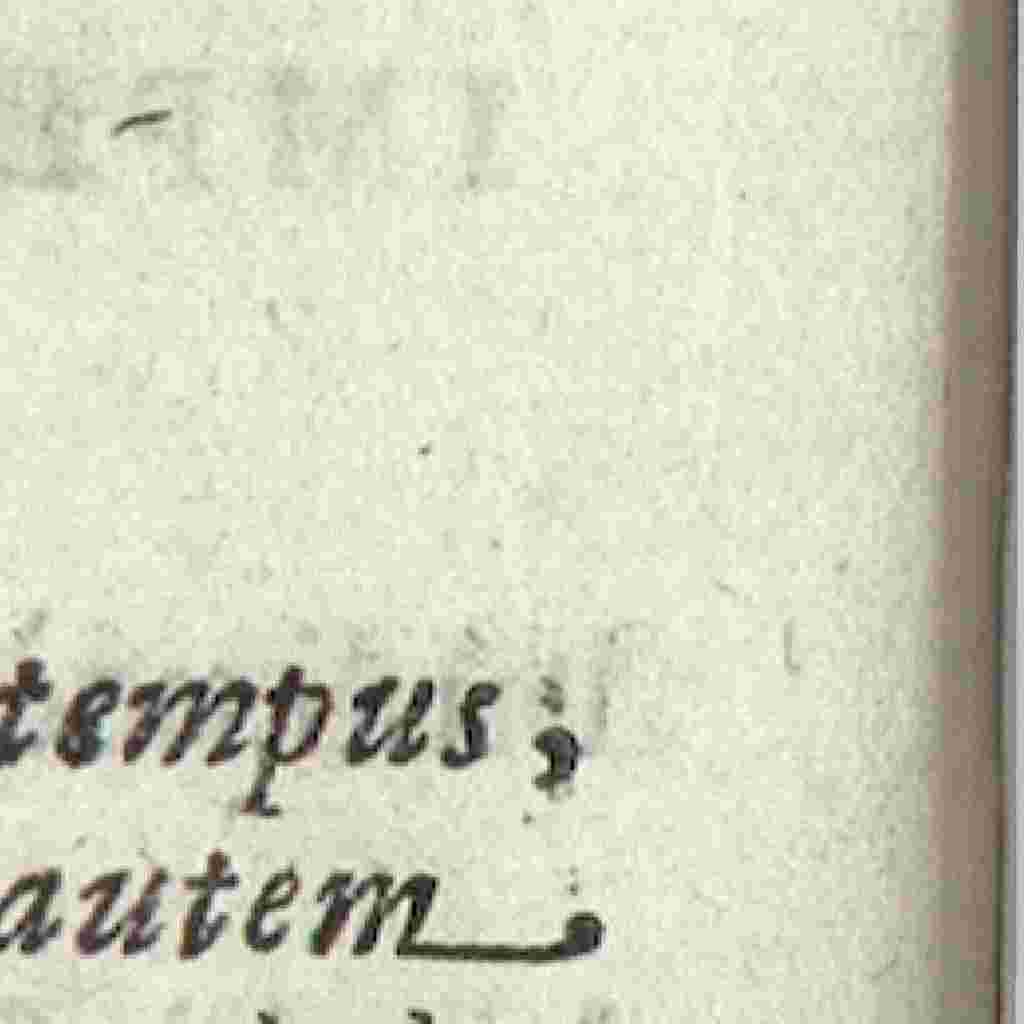 tempus;
autem